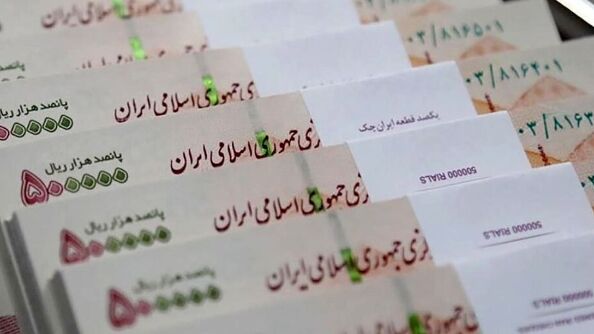 جمهوری اسلامی ایران
۰۳/۸۱۶۵۰۱
پانصد هزار ریال
جمهوری اسلامی ایران
۰۳/۸۱۶۴۰۱
یکصد قطعه ایران چک
پانصد هزار ریال
۵۰۰۰۰۰
جمهوری اسلامی ایران
500000 RIALS
پانصد هزار ریال
۵۰۰۰۰۰
جمهوری اسلامی ایران
500000 RIALS
پانصد هزار ریال
۵۰۰۰۰۰
جمهوری اسلامی ایران